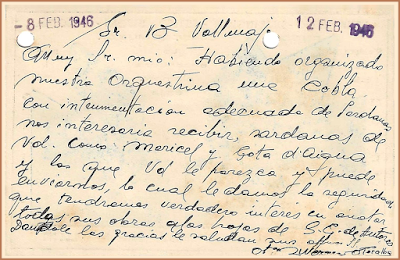 - 8 FEB. 1946
12 FEB. 1946
Sr. B Vallmajo
Muy Sr. mio: Habiendo organizado
nuestra Orquestrina una Cobla,
con intrumentacion adecuada de Sardanas
nos interesaria recibir, sardanas de
Vd. como Maricel y Gota d'aigua
y las que Vd le parezca y puede
enviarnos, lo cual le damos la seguridad
que tendremos verdadero interes en anotar
todas sus obras a las hojas de S.E. de Autores
Dandole las gracias le saludan sus affmos